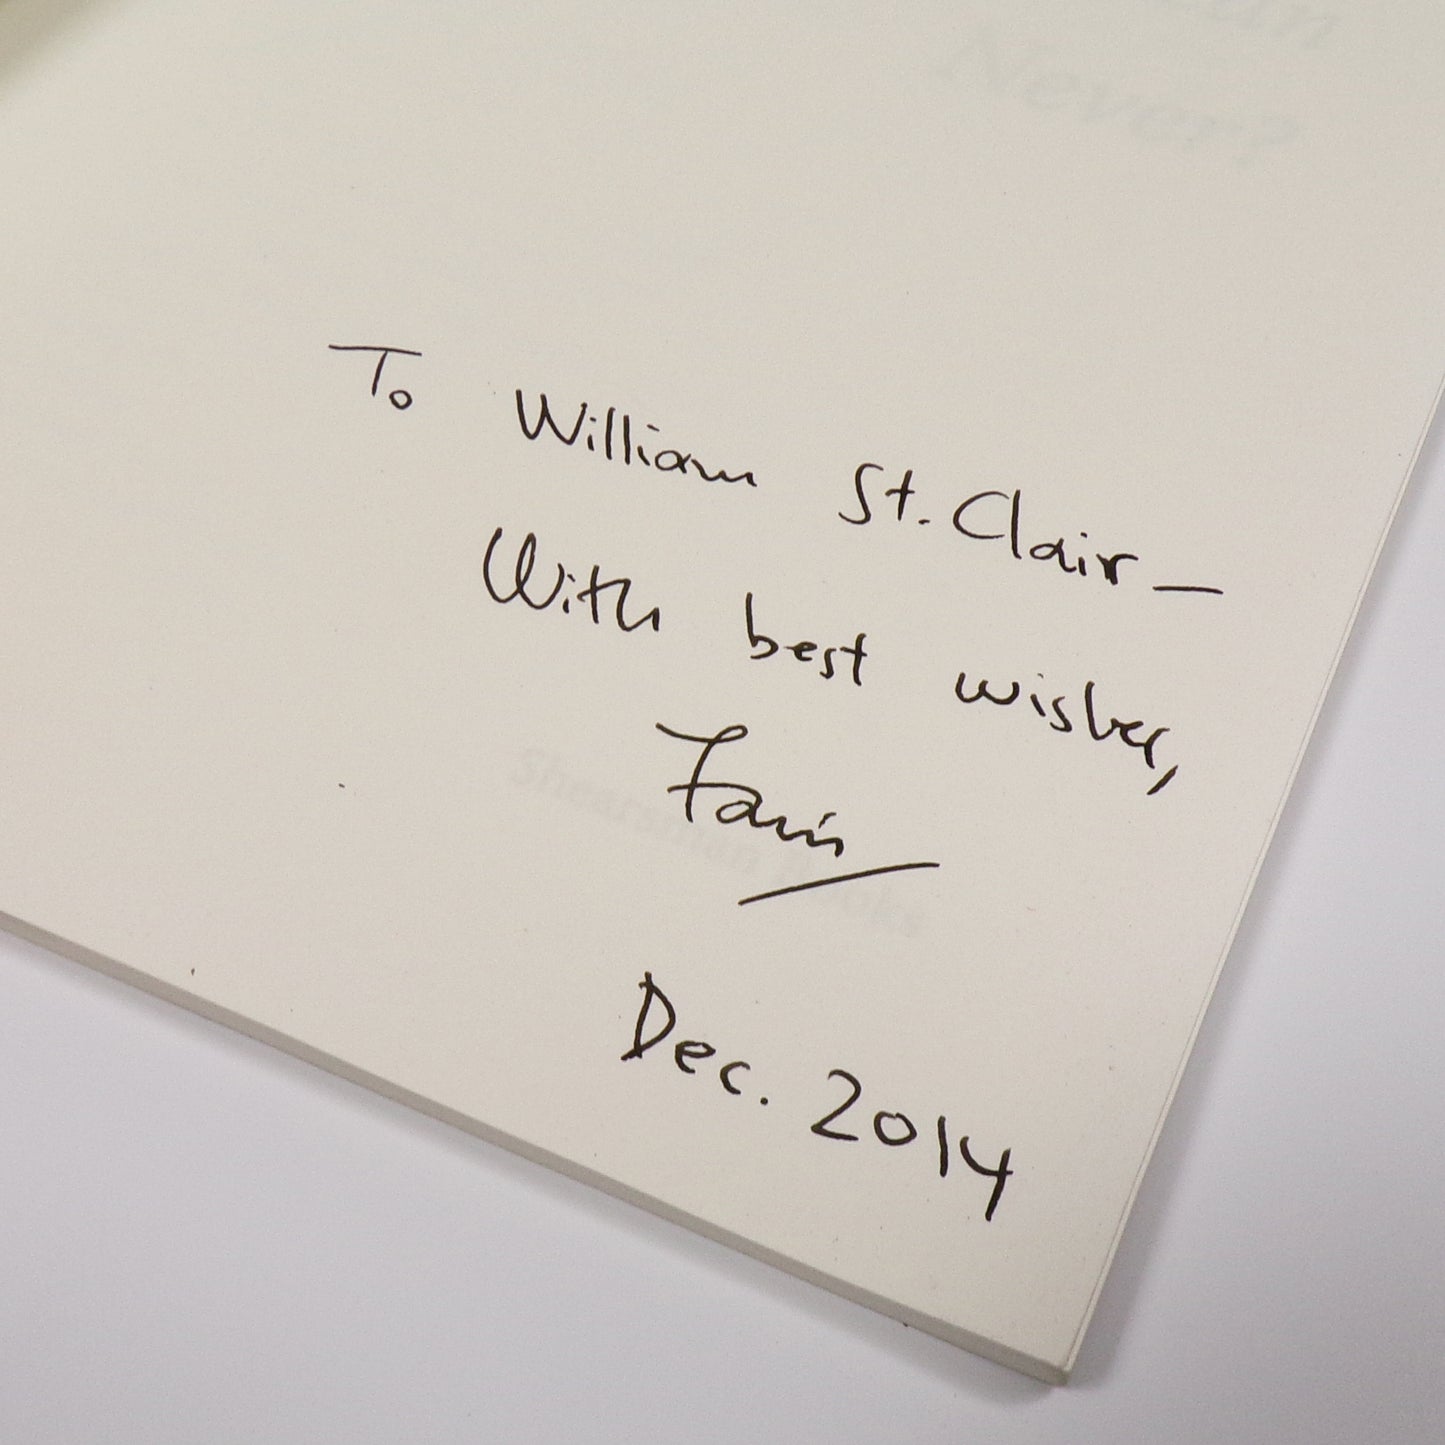 Never?
To William St. Clair —
With best wishes,
Shearsman Books
Dec. 2014